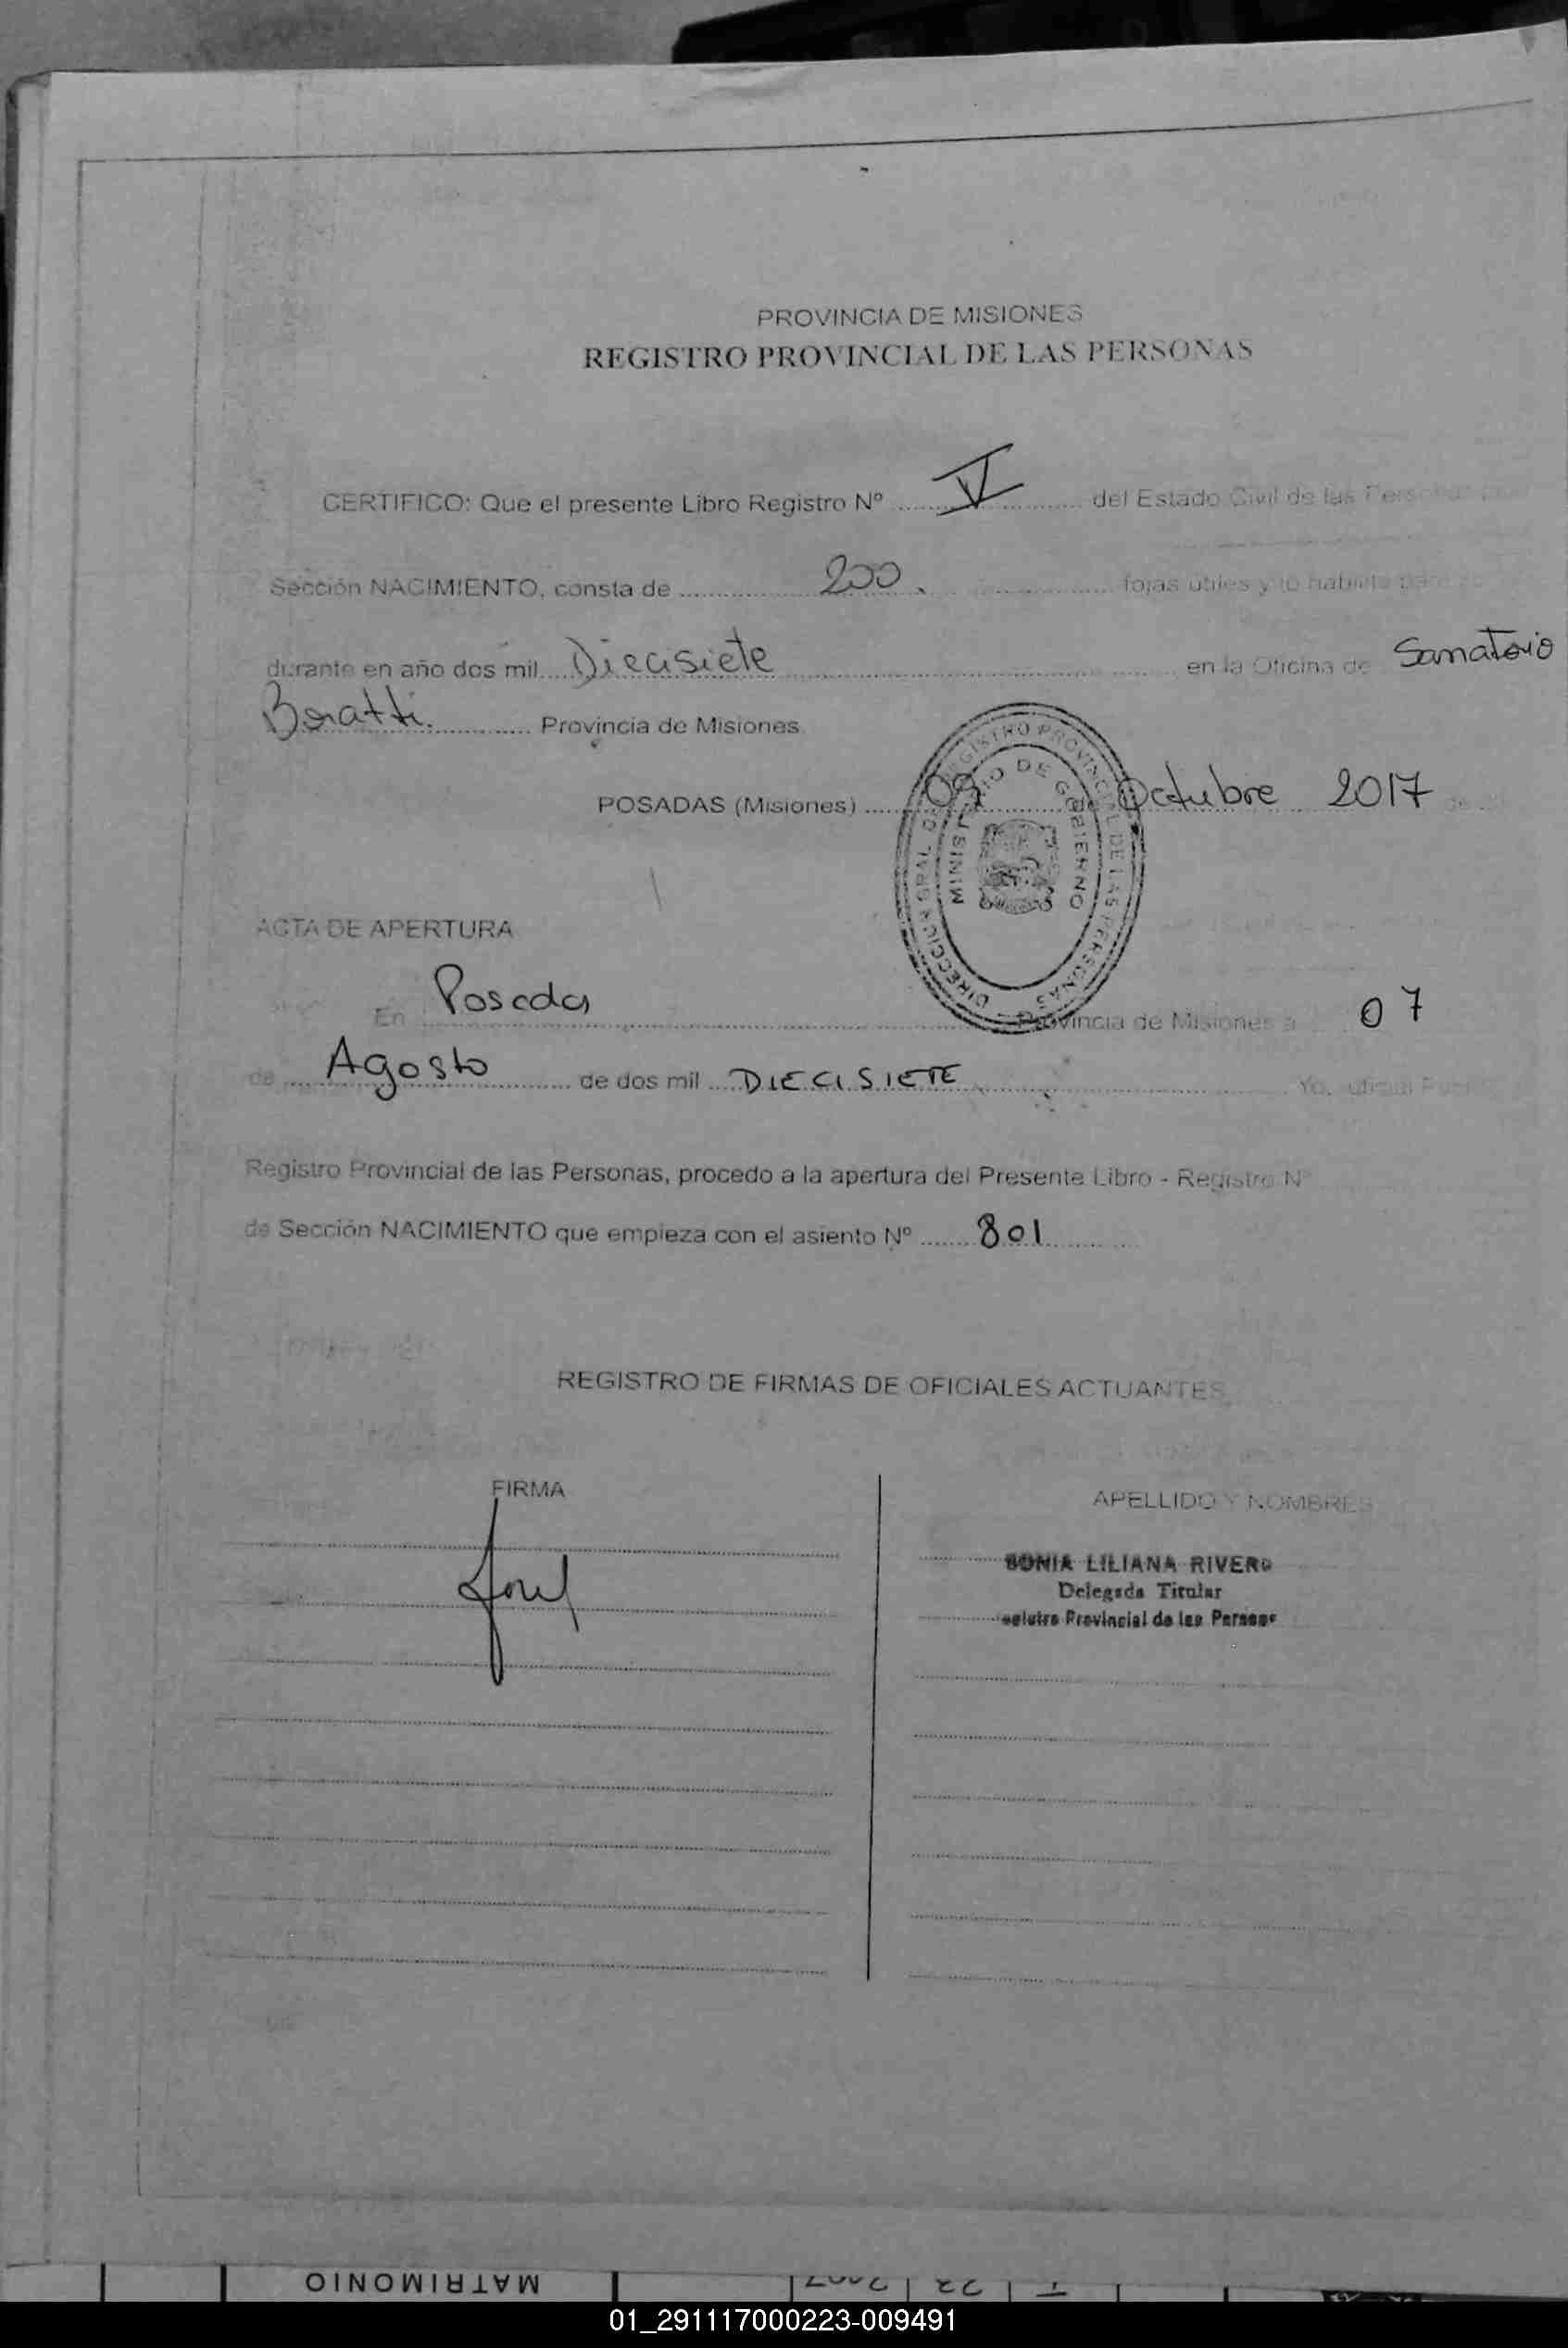 PROVINCIA DE MISIONES
REGISTRO PROVINCIAL DE LAS PERSONAS
CERTIFICO: Que el presente Libro Registro Nº V del Estado Civil de las Personas
Sección NACIMIENTO, consta de 200. fojas útiles y lo habilito para
durante en año dos mil Diecisiete en la Oficina de Sanatorio
Boratti. Provincia de Misiones
POSADAS (Misiones) 09 de Octubre 2017
DIRECCION GRAL. DE REGISTRO PROVINCIAL DE LAS PERSONAS
MINISTERIO DE GOBIERNO
ACTA DE APERTURA
En Posadas Provincia de Misiones a 07
de Agosto de dos mil DIECISIETE Yo, oficial
Registro Provincial de las Personas, procedo a la apertura del Presente Libro - Registro Nº
de Sección NACIMIENTO que empieza con el asiento Nº 801
REGISTRO DE FIRMAS DE OFICIALES ACTUANTES
FIRMA APELLIDO Y NOMBRES
SONIA LILIANA RIVERO
Delegada Titular
Provincial de las Personas
MATRIMONIO
01_291117000223-009491